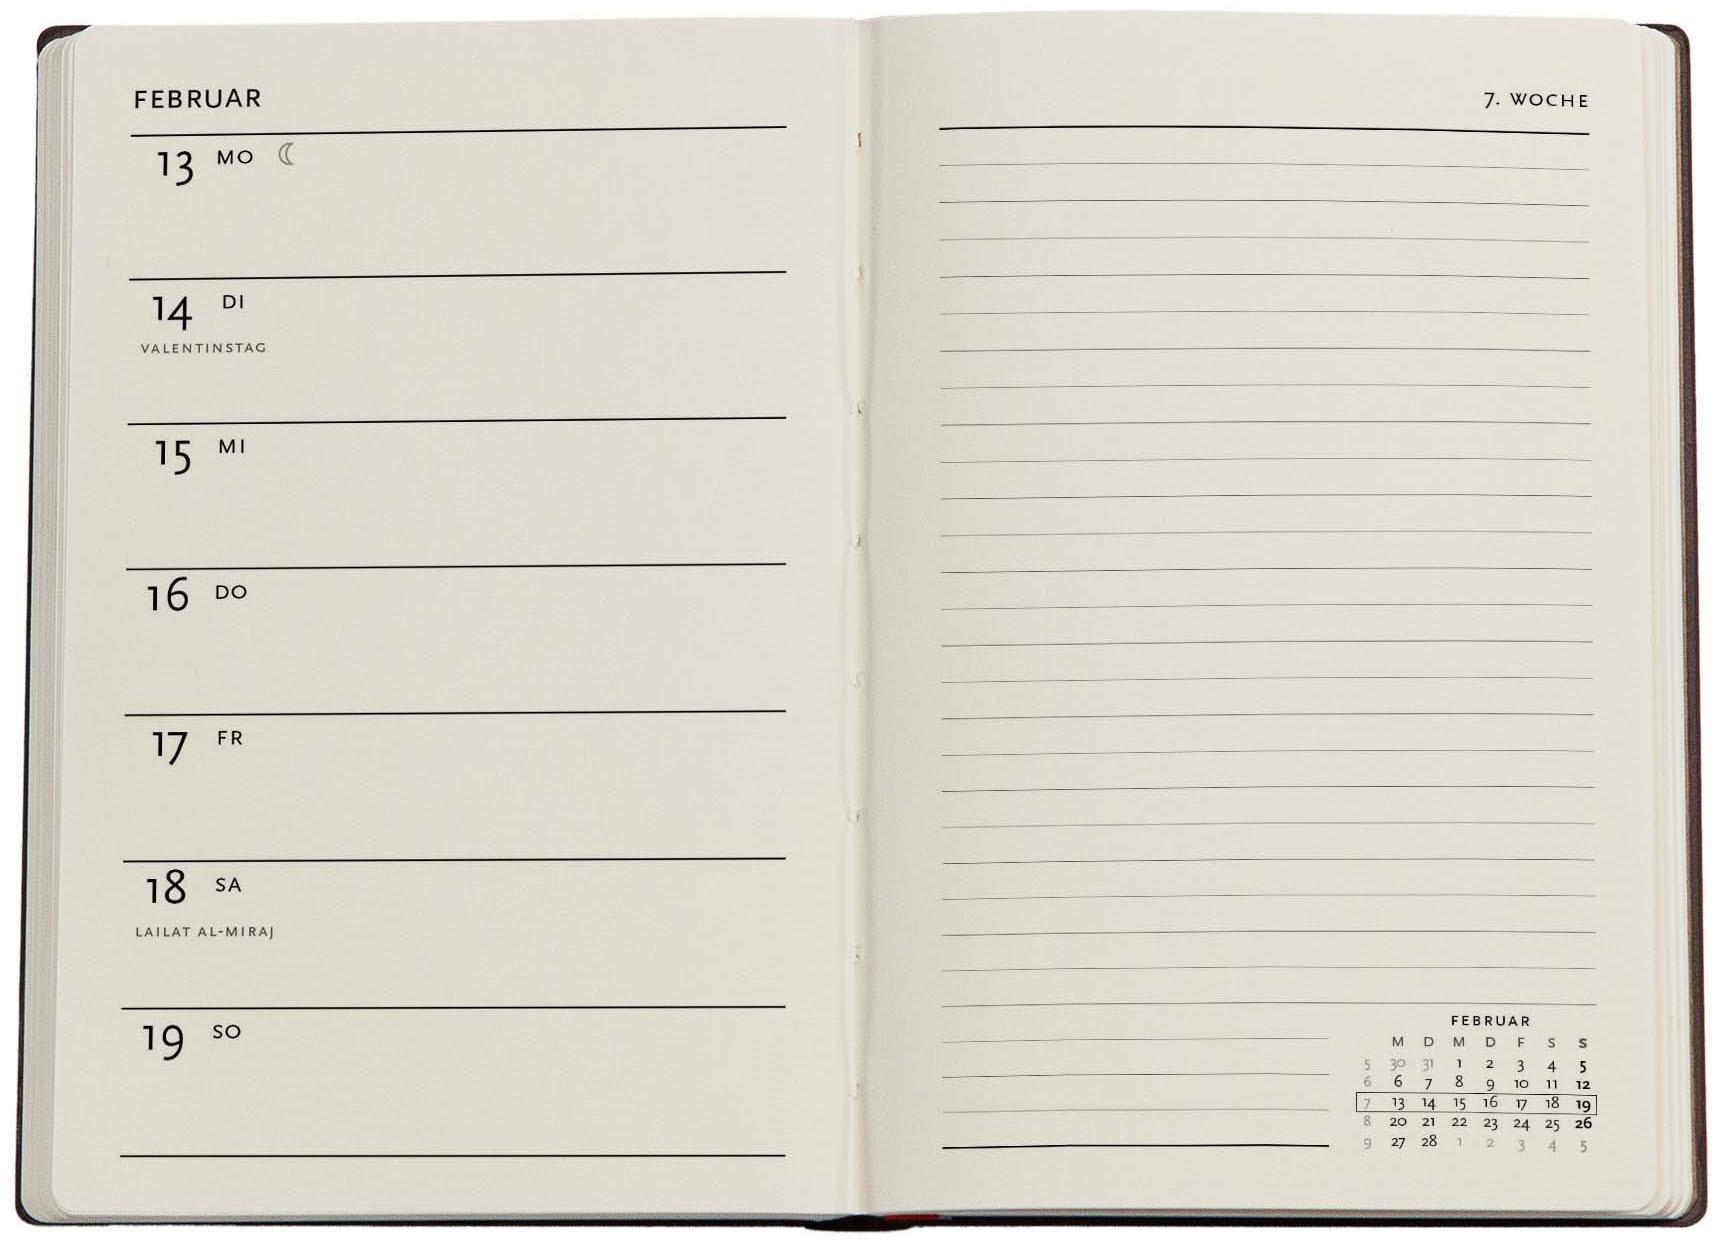 FEBRUAR
13 MO
14 DI
VALENTINSTAG
15 MI
16 DO
17 FR
18 SA
LAILAT AL-MIRAJ
19 SO
7. WOCHE
FEBRUAR
M D M D F S S
5 30 31 1 2 3 4 5
6 6 7 8 9 10 11 12
7 13 14 15 16 17 18 19
8 20 21 22 23 24 25 26
9 27 28 1 2 3 4 5